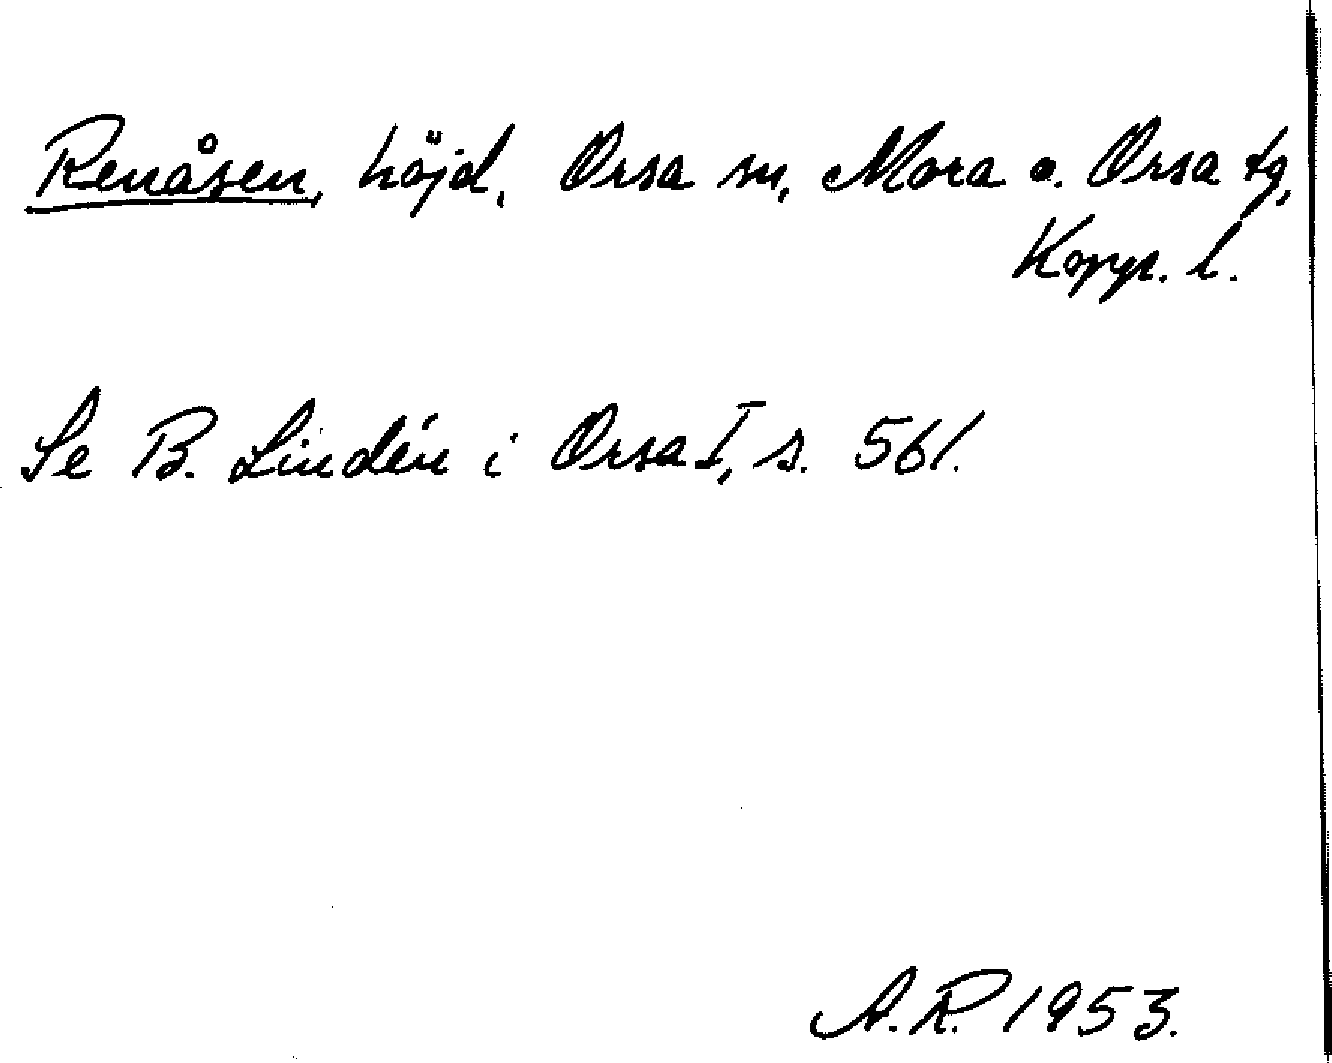 Renåsen, höjd, Orsa sn, Mora o. Orsa tg,
Kopp. l.
Se B. Lindén i Orsa I, s. 561.
A.R. 1953.